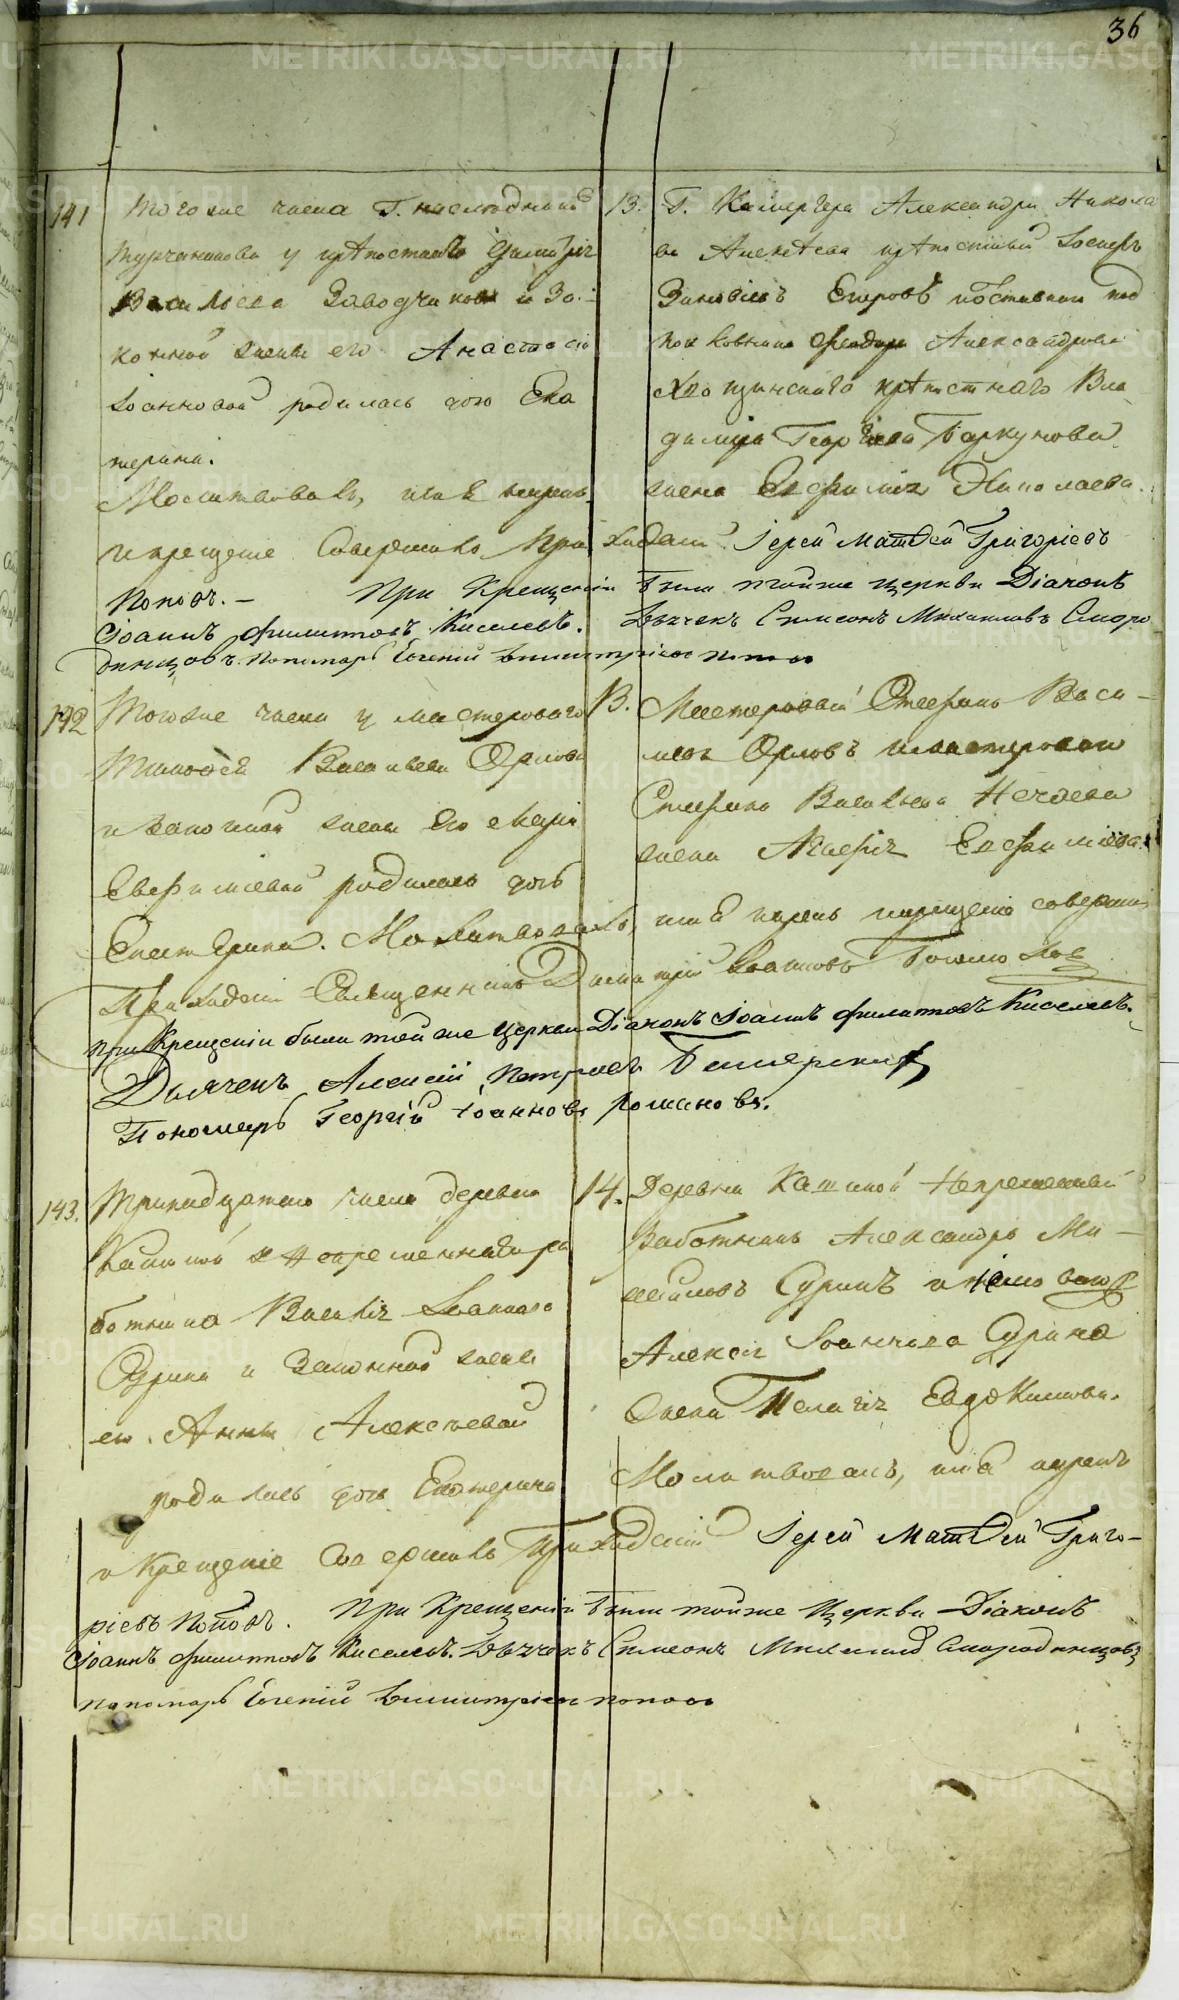 36
141 Тогоже числа Г. наслѣдниковъ
Турчанинова у крѣпостнаго Димитрія
Васильева Заводчикова и За-
конной жены его Анастасіи
Іоанновой родилась дочь Ека
терина.
13. Г. Камергера Александра Никола
ева крѣпостный Іосифъ
Зиновіевъ Егоровъ под
полковника Феодора Александрова
крѣпостнаго Вла
диміра Георгіева Баркунова
жена Евфимія Николаева.
Молитвовалъ, имя нарекъ
и крещеніе Совершилъ Приходскій Іерей Матѳей Григоріевъ
Поповъ. — При Крещеніи были тойже церкви Діаконъ
Іоаннъ Филитовъ Киселевъ. Дьячекъ Симеонъ Михаиловъ Сморо
динцовъ Пономарь Евгеній Димитріевъ Поповъ
142 Тогоже числа у мастероваго
Тимоѳея Васильева Орлова
и Законной жены его Маріи
Евфиміевой родилась дочь
Екатерина.
13. Мастеровый Стефанъ Васи-
льевъ Орловъ и мастероваго
Стефана Васильева Нечаева
жена Агафія Евфимiева.
Молитвовалъ, имя нарекъ и крещеніе совершилъ
Приходскій Священникъ Димитрій Іоанновъ
При Крещеніи были тойже Церкви Діаконъ Іоаннъ Филитовъ Киселевъ.
Дьячекъ Алексій Петровъ
Пономарь Георгій Іоанновъ Романовъ.
143. Тринадцатаго числа деревни
Кашиной у Непремѣннаго ра
ботника Василія Іоаннова
Сурина и Законной жены
его Анны Алексѣевой
родилась дочь Екатерина
14. Деревни Кашиной Непремѣнный
Работникъ Александръ Ми-
хайловъ Суринъ и
Алексія Іоаннова Сурина
жена Пелагія Евдокимова.
Молитвовалъ, имя нарекъ
и Крещеніе Совершилъ Приходскій Іерей Матѳей Григо-
ріевъ Поповъ. При Крещеніи были тойже Церкви Діаконъ
Іоаннъ Филитовъ Киселевъ. Дьячекъ Симеонъ Михаиловъ Смородинцовъ
Пономарь Евгеній Димитріевъ Поповъ
METRIKI.GASO-URAL.RU